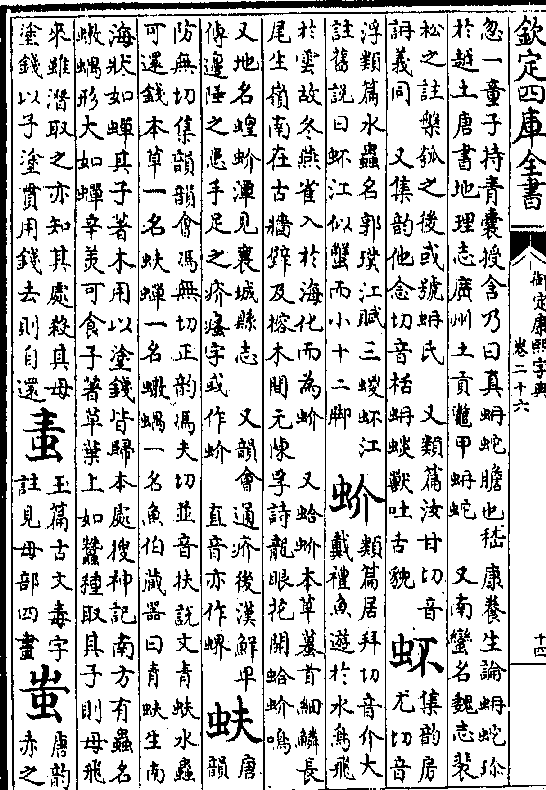 欽定四庫全書
御定康熙字典
卷二十六
十四
忽一童子持青囊授含乃曰真蚺蛇膽也嵇康養生論蚺蛇珍
於越土唐書地理志廣州土貢鼈甲蚺蛇 又南蠻名魏志裴
松之註槃瓠之後或號蚺氏 又類篇汝甘切音
詽義同 又集韵他念切音栝蚺獸吐舌貌
𧉈
集韵房
尤切音
浮類篇水蟲名郭璞江賦三蝬𧉈江
註舊說曰𧉈江似蟹而小十二脚
蚧
類篇居拜切音介大
戴禮魚遊於水鳥飛
於雲故冬燕雀入於海化而為蚧 又蛤蚧本草蟇首細鱗長
尾生嶺南在古牆壁及榕木間元陳孚詩龍眼花開蛤蚧鳴
又地名蝗蚧潭見襄城縣志 又韻會通疥後漢鮮卑
傳邊陲之患手足之疥瘙字或作蚧 直音亦作
蚨
唐
韻
防無切集韻韻會馮無切正韵馮夫切並音扶說文青蚨水蟲
可還錢本草一名蚨蟬一名蟱蝸一名魚伯藏器曰青蚨生南
海狀如蟬其子著木用以塗錢皆歸本處搜神記南方有蟲名
蟱蝸形大如蟬辛美可食子著草葉上如蠶種取其子則母飛
來雖潛取之亦知其處殺其母
塗錢以子塗貫用錢去則自還
玉篇古文毒字
註見毋部四畫
蚩
唐韵
赤之